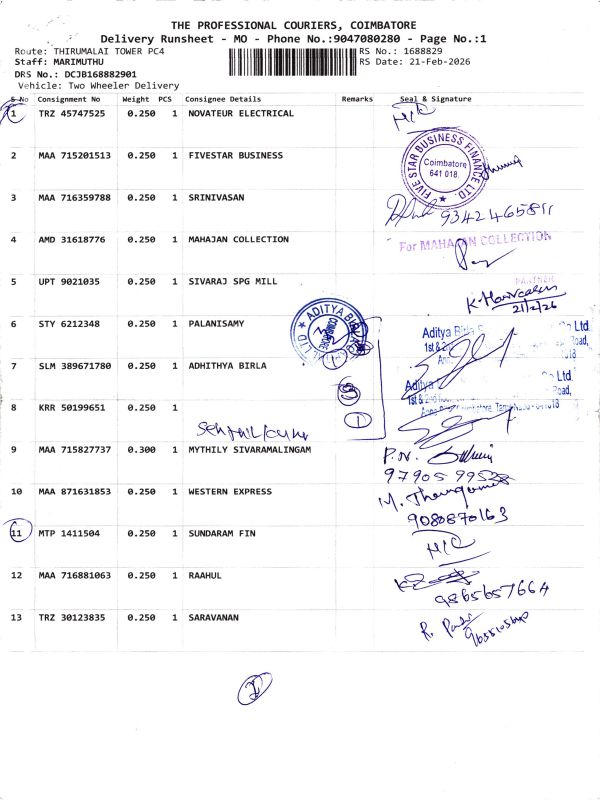 THE PROFESSIONAL COURIERS, COIMBATORE
Delivery Runsheet - MO - Phone No.:9047080280 - Page No.:1
Route: THIRUMALAI TOWER PC4 RS No.: 1688829
Staff: MARIMUTHU RS Date: 21-Feb-2026
DRS No.: DCJB168882901
Vehicle: Two Wheeler Delivery
S No Consignment No Weight PCS Consignee Details Remarks Seal & Signature
1 TRZ 45747525 0.250 1 NOVATEUR ELECTRICAL
2 MAA 715201513 0.250 1 FIVESTAR BUSINESS
FIVE STAR BUSINESS FINANCE LTD.
Coimbatore
641 018.
3 MAA 716359788 0.250 1 SRINIVASAN
9342465811
4 AMD 31618776 0.250 1 MAHAJAN COLLECTION
For MAHAJAN COLLECTION
PARTNER
5 UPT 9021035 0.250 1 SIVARAJ SPG MILL
21/2/26
6 STY 6212348 0.250 1 PALANISAMY
ADITYA BIRLA
COIMBATORE
Aditya Birla S Co Ltd
1st & 2 Road,
018
7 SLM 389671780 0.250 1 ADHITHYA BIRLA
Aditya Ltd.
1st & 2nd Road,
641018
8 KRR 50199651 0.250 1
1
9 MAA 715827737 0.300 1 MYTHILY SIVARAMALINGAM
P.N.
97905 99528
10 MAA 871631853 0.250 1 WESTERN EXPRESS
9080870163
11 MTP 1411504 0.250 1 SUNDARAM FIN
12 MAA 716881063 0.250 1 RAAHUL
9865657664
13 TRZ 30123835 0.250 1 SARAVANAN